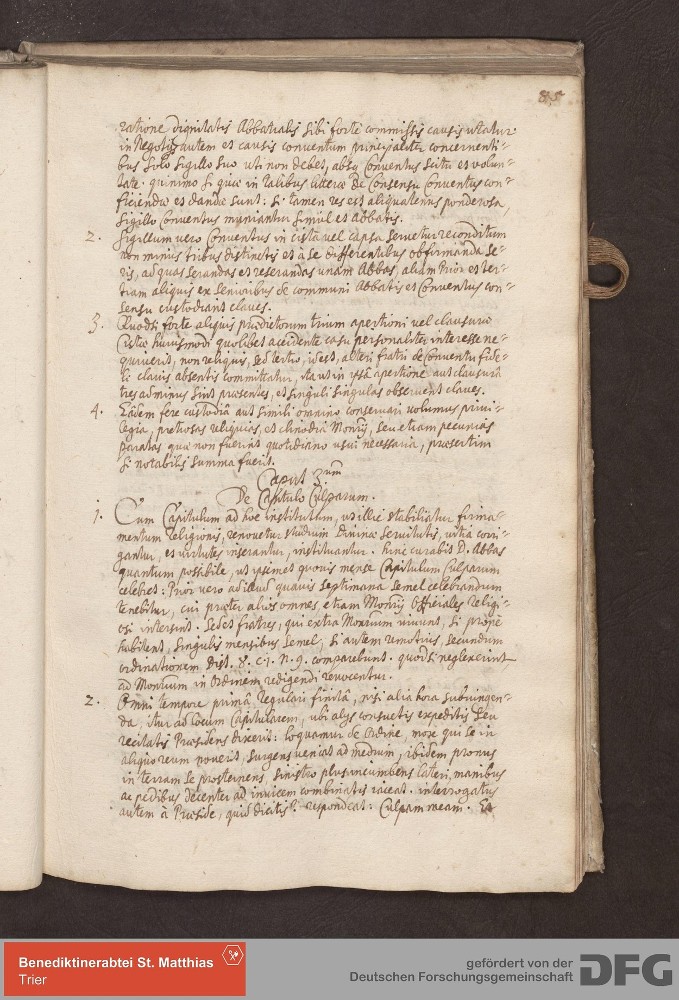 ratione dignitatis Abbatialis sibi forte commissis causis utatur
in Negotijs autem et causis conventum principaliter concernenti-
bus solo sigillo suo uti non debet, absq Conventus scitu et volun-
tate: quinimo si quae in talibus litterae de Consensu Conventus con-
ficiendae et dandae sunt: si tamen res est aliquatenus ponderosa,
sigillo Conventus muniantur simul et Abbatis.
2. Sigillum vero Conventus in cista vel capsa servetur reconditum
non minus tribus distinctis et à se differentibus obfirmanda se-
ris, ad quas serandas et reserandas unam Abbas, aliam Prior et ter-
tiam aliquis ex senioribus de communi Abbatis et Conventus con-
sensu custodiant claves.
3. Quodsi forte aliquis praedictorum trium apertioni vel clausurae
Cistae huiusmodi quolibet accidente casu personaliter interesse ne-
quiverit, non reliquis, sed tertio, id est, alteri fratri de Conventu fide-
li clavis absentis committatur, ita ut in ipsâ apertione aut clausurâ
tres ad minus sint praesentes, et singuli singulas observent claves.
4. Eâdem fere custodiâ aut simili omnino conservari volumus privi-
legia, pretiosas reliquias, et clinodia Monrij, seu etiam pecunias
paratas quae non fuerint quotidiano usui necessaria, praesertim
si notabilis summa fuerit.
Caput 3.um
De Capitulo Culparum.
1. Cum Capitulum ad hoc institutum, ut illic stabiliatur firma-
mentum Religionis, renovetur studium Divinae servitutis, vitia corri-
gantur, et virtutes inserantur, instituantur. hinc curabit D. Abbas
quantum possibile, ut ipsimet quovis mense Capitulum Culparum
celebret: Prior vero ad illud quavis septimana semel celebrandum
tenebitur, cui praeter alios omnes, etiam Monrij Officiales Religi-
osi intersint. Sed et fratres, qui extra Monrium vivunt, si prope
habitent, singulis mensibus semel, si autem remotius, secundum
ordinationem Dist. 8. c. 1. n. 9. comparebunt. quod si neglexerint
ad Monrium in ordinem redigendi revocentur.
2. Omni tempore primâ Regulari finitâ, nisi alia hora subiungen-
da, itur ad locum Capitularem, ubi alijs consuetis expeditis seu
recitatis Praesidens dixerit: loquamur de Ordine, mox qui se in
aliquo reum noverit, surgens veniat ad medium, ibidem pronus
in terram se prosternens, sinistro plus incumbens lateri, manibus
ac pedibus decenter ad invicem combinatis iaceat. interrogatus
autem à Praeside, quid dicitis? respondeat: Culpam meam. Et
Benediktinerabtei St. Matthias
Trier
gefördert von der
Deutschen Forschungsgemeinschaft
DFG